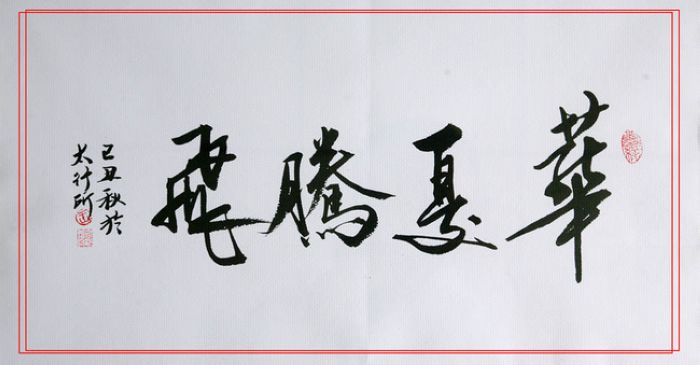 華夏騰飛
己丑秋於
太行